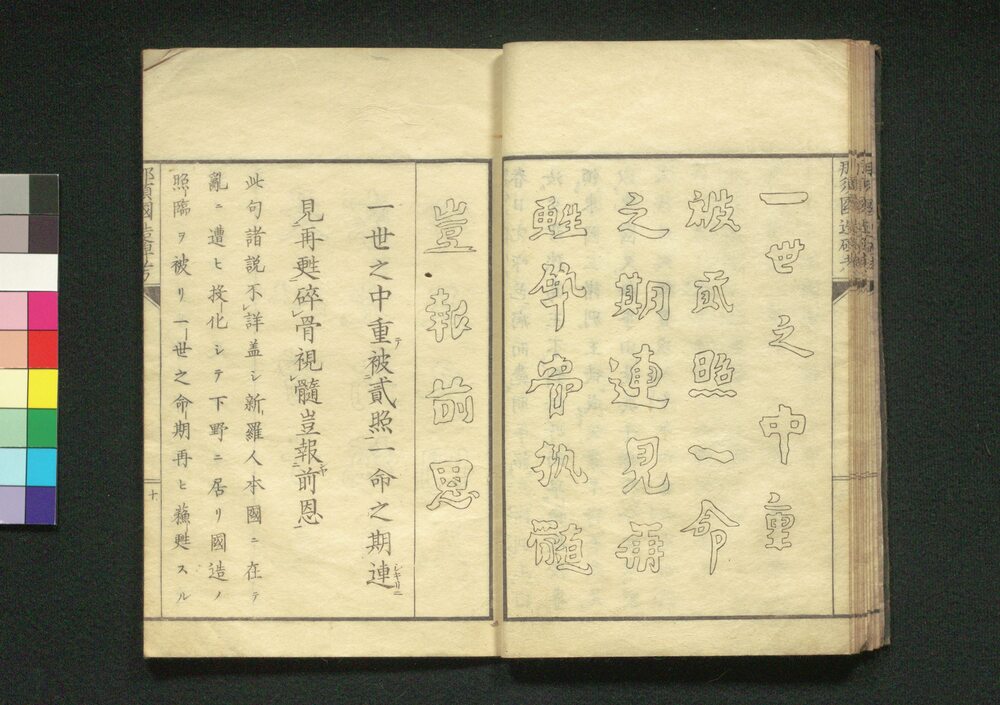 一世之中重
被貳照一命
之期連見再
甦砕骨視髄
豈報前恩
一世之中重テ被貳照一命之期連シキリニ
見再甦碎骨視髓豈報前恩
此句諸説不詳蓋シ新羅人本國ニ在テ
亂ニ遭ヒ投化シテ下野ニ居リ國造ノ
照臨ヲ被リ一世之命期再ヒ蘓甦スル
十